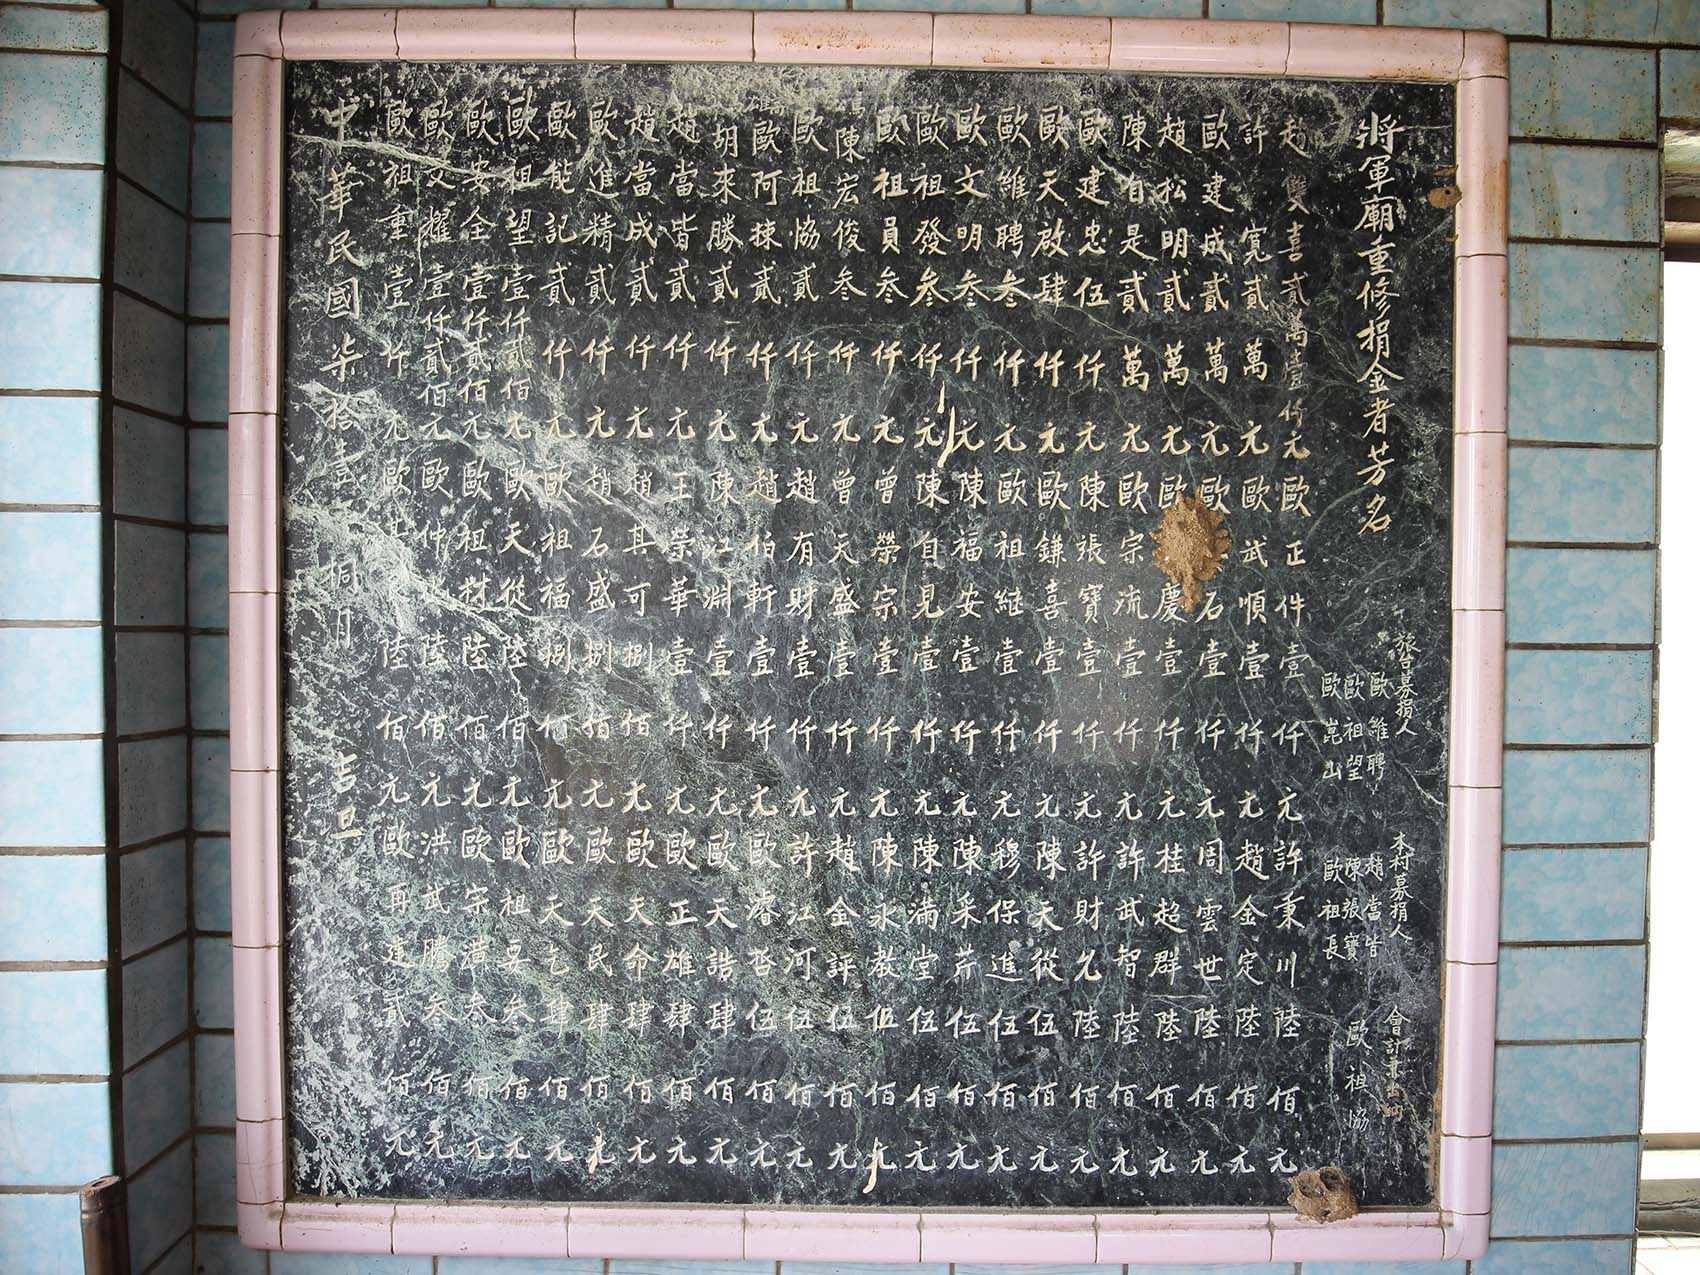 將軍廟重修捐金者芳名
旅台募捐人
歐維聘
歐祖望
歐崑山
本村募捐人
趙當皆
陳張寶
歐祖長
會計兼出納
歐祖協
趙雙喜貳萬壹仟元歐正件壹仟元許秉川陸佰元
許寬貳萬元歐武順壹仟元趙金定陸佰元
歐建成貳萬元歐石壹仟元周雲世陸佰元
趙松明貳萬元歐慶壹仟元桂超群陸佰元
陳自是貳萬元歐宗流壹仟元許武智陸佰元
歐建忠伍仟元陳張寶壹仟元許財允陸佰元
歐天啟肆仟元歐鎌喜壹仟元陳天從伍佰元
歐維聘叁仟元歐祖継壹仟元穆保進伍佰元
歐文明叁仟元陳福安壹仟元陳采芹伍佰元
歐祖發叁仟元陳自見壹仟元陳滿堂伍佰元
歐祖員叁仟元曾榮宗壹仟元陳永教伍佰元
陳宏俊叁仟元曾天盛壹仟元趙金評伍佰元
歐祖協貳仟元趙有財壹仟元許江河伍佰元
歐阿抹貳仟元趙伯軒壹仟元歐濬哲伍佰元
胡來勝貳仟元陳江淵壹仟元歐天誥肆佰元
趙當皆貳仟元王榮華壹仟元歐正雄肆佰元
趙當成貳仟元趙其可捌佰元歐天命肆佰元
歐進精貳仟元趙石盛捌佰元歐天民肆佰元
歐能記貳仟元歐祖福捌佰元歐天乞肆佰元
歐祖望壹仟貳佰元歐天從陸佰元歐祖要叁佰元
歐安全壹仟貳佰元歐祖材陸佰元歐宗滿叁佰元
歐文耀壹仟貳佰元歐仲陸佰元洪武騰叁佰元
歐祖重壹仟元歐其陸佰元歐再建貳佰元
中華民國柒拾壹桐月吉旦